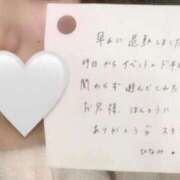 早めに退勤しました
昨日からイベントのドキ
間から遊んでくれた
お兄様、ほんとうに
ありがとう
ひなみ